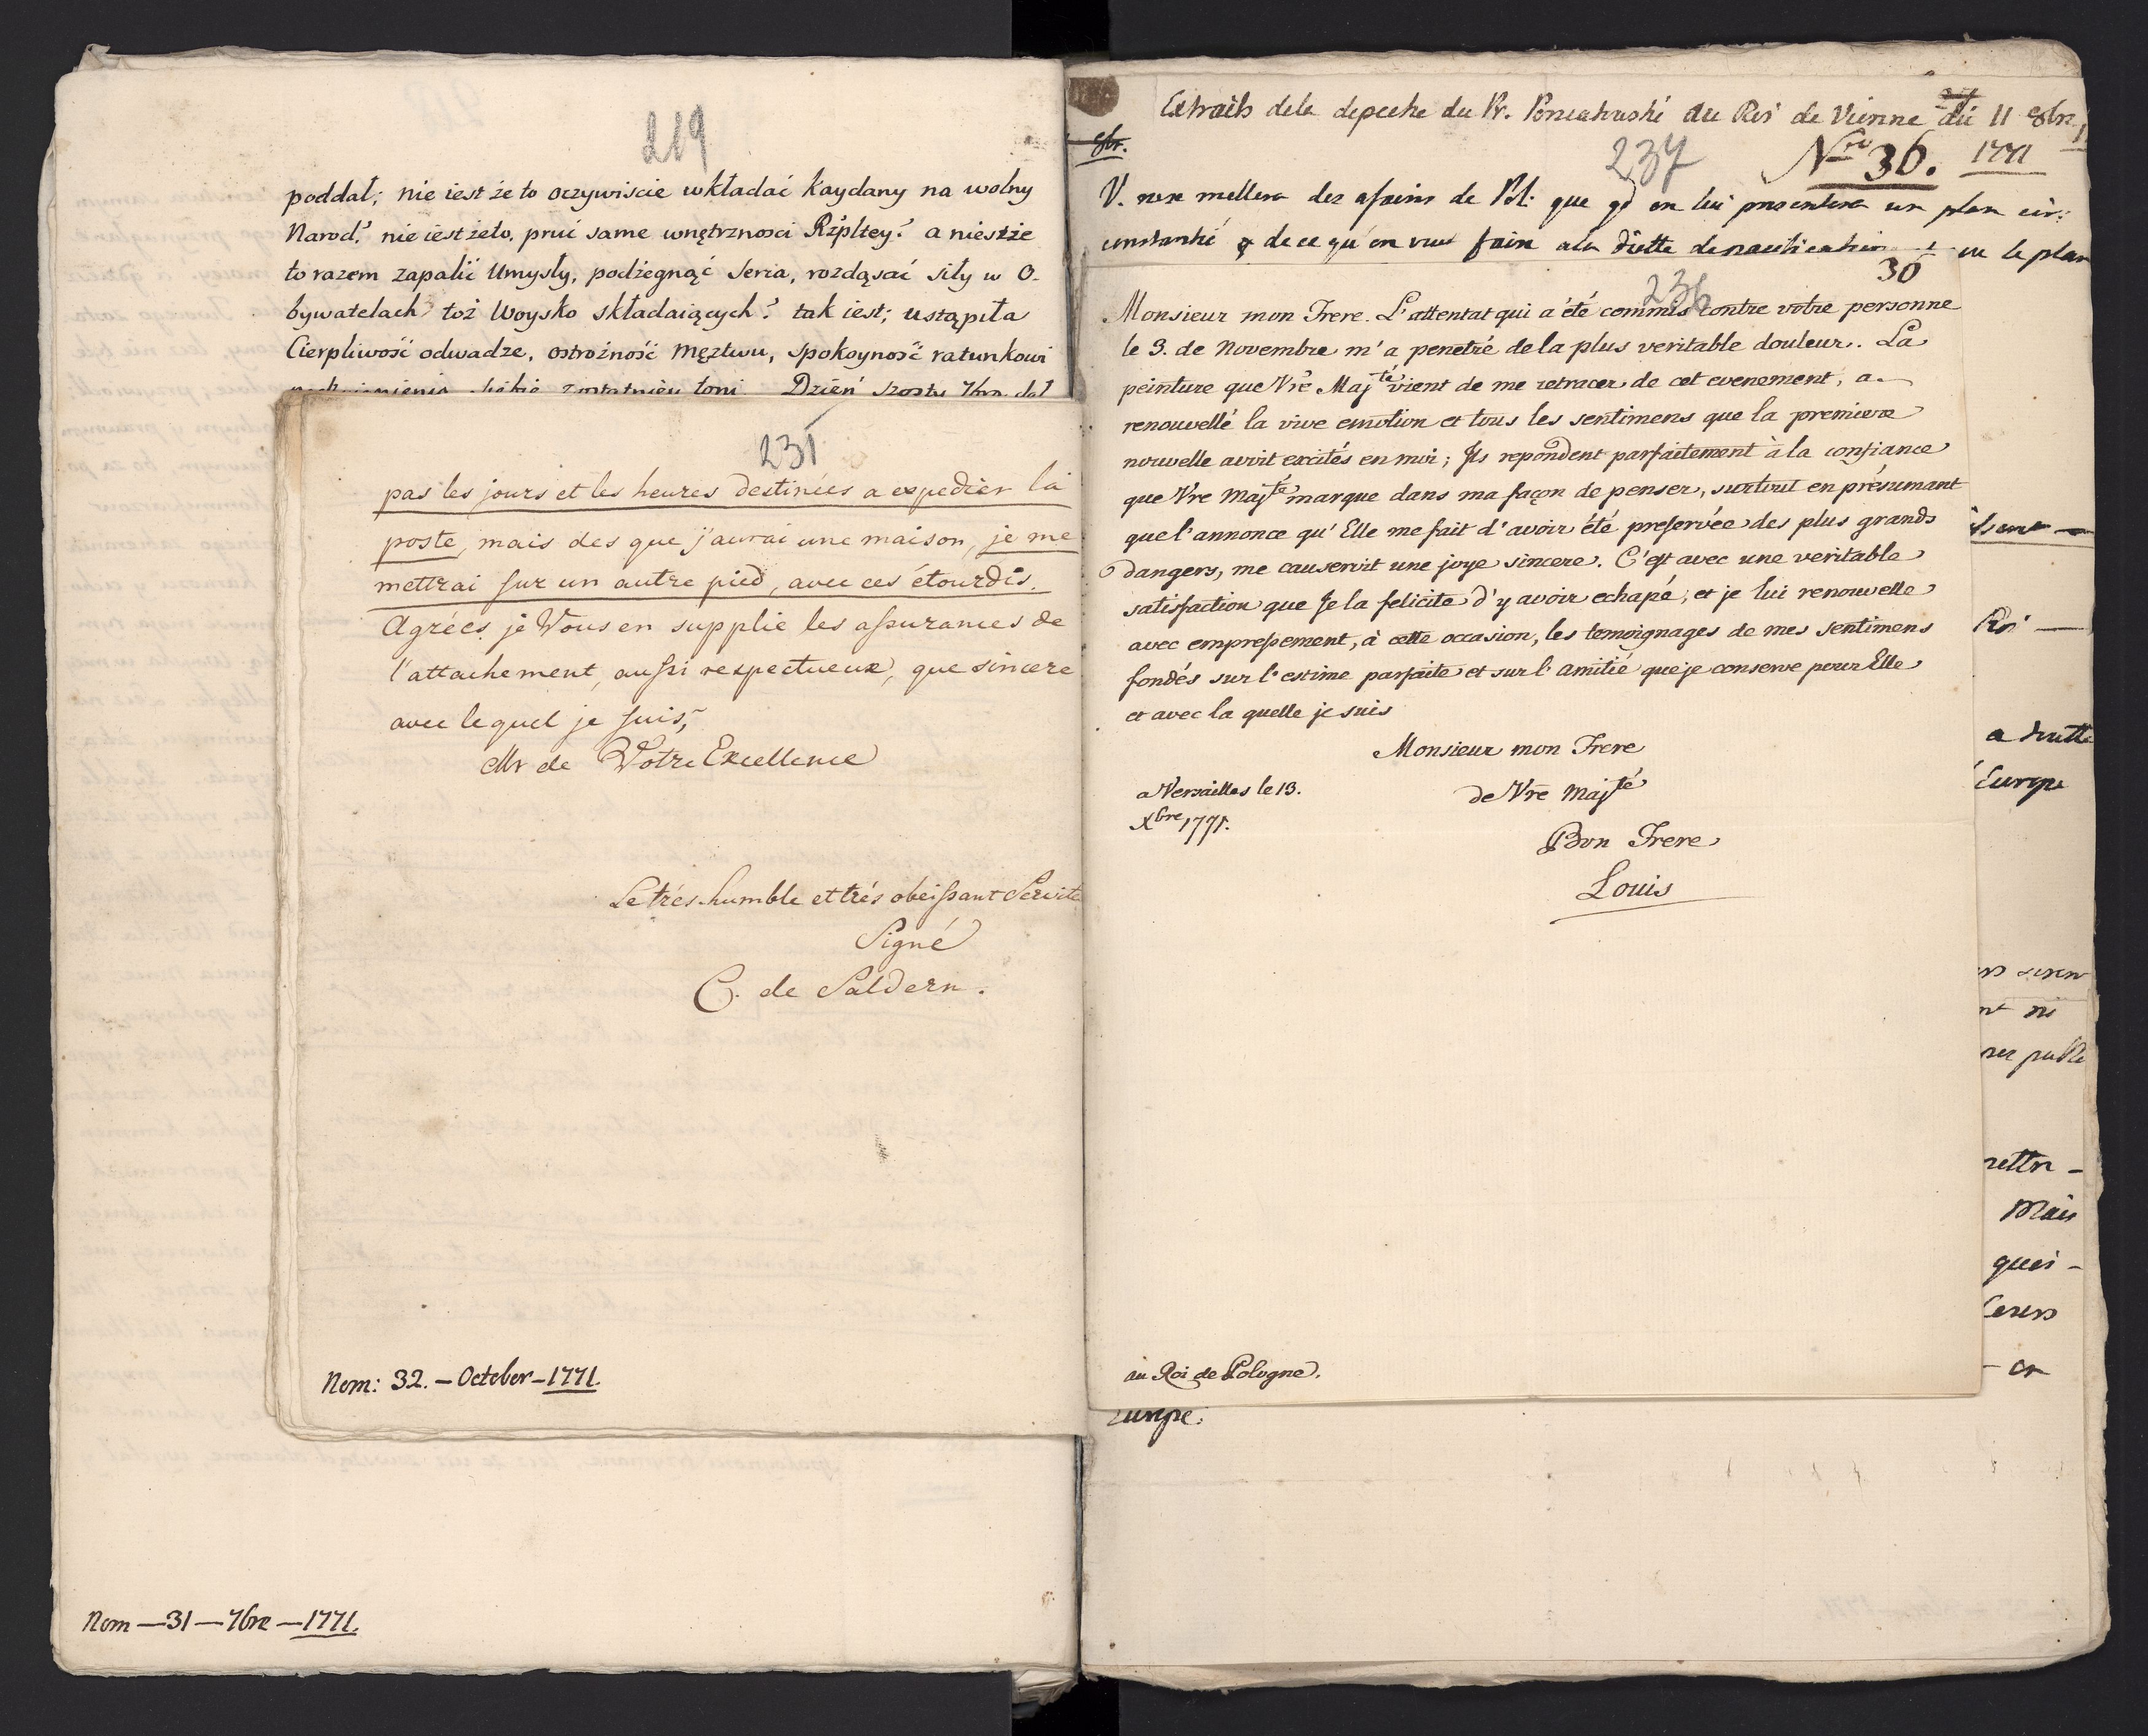 219
poddał; nie iest że to oczywiscie wkładać kaydany na wolny
Narod? nie iest żeto, pruć same wnętrznosci Rzpltey? a niestże
to razem zapalić Umysły, podżegnąć Serca, rozdąsać siły w O-
bywatelach toż Woysko składaiących? tak iest; ustąpiła
Cierpliwość odwadze, ostrożność męztwu, spokoyność ratunkowi
toni. Dzień szosty 7bra dał
Nom — 31 — 7bre — 1771.
231
pas les jours et les heures destinées a expedier la
poste, mais des que j'aurai une maison, je me
mettrai sur un autre pied, avec ces étourdis.
Agréés je Vous en supplie les assurances de
l'attachement, aussi respectueux, que sincere
avec lequel je suis,
Mr de Votre Excellence
Le trés humble et trés obeissant Servite
Signé
C. de Saldern.
Nom: 32. – October – 1771.
Extraits de la depeche du Pr. Poniatowski au Roi de Vienne du 11 8bre
8br.
237
Nro 36. 1771
V. ne se mellera des afaires de Pol: que qd on lui presentera un plan cir:
constantié & de ce qu'on veut faire a la diette de pacification ou le plan
30
236
Monsieur mon Frere. L'attentat qui a été commis contre votre personne
le 3. de Novembre m'a penetré de la plus veritable douleur. La
peinture que Vre Majté vient de me retracer de cet evenement, a
renouvellé la vive emotion et tous les sentimens que la premiere
nouvelle avoit excités en moi; Ils repondent parfaitement à la confiance
que Vre Majté marque dans ma façon de penser, surtout en présumant
que l'annonce qu'Elle me fait d'avoir été preservée des plus grands
dangers, me causeroit une joye sincere. C'est avec une veritable
satisfaction que Je la felicite d'y avoir echapé, et je lui renouvelle
avec empressement, à cette occasion, les temoignages de mes sentimens
fondés sur l'estime parfaite et sur l'amitié que je conserve pour Elle
et avec la quelle je suis
Monsieur mon Frere
a Versailles le 13.
Xbre 1771.
de Vre Majté
Bon Frere
Louis
au Roi de Pologne.
Roi —
Europe
ni
Mais
quoi -
Europe.